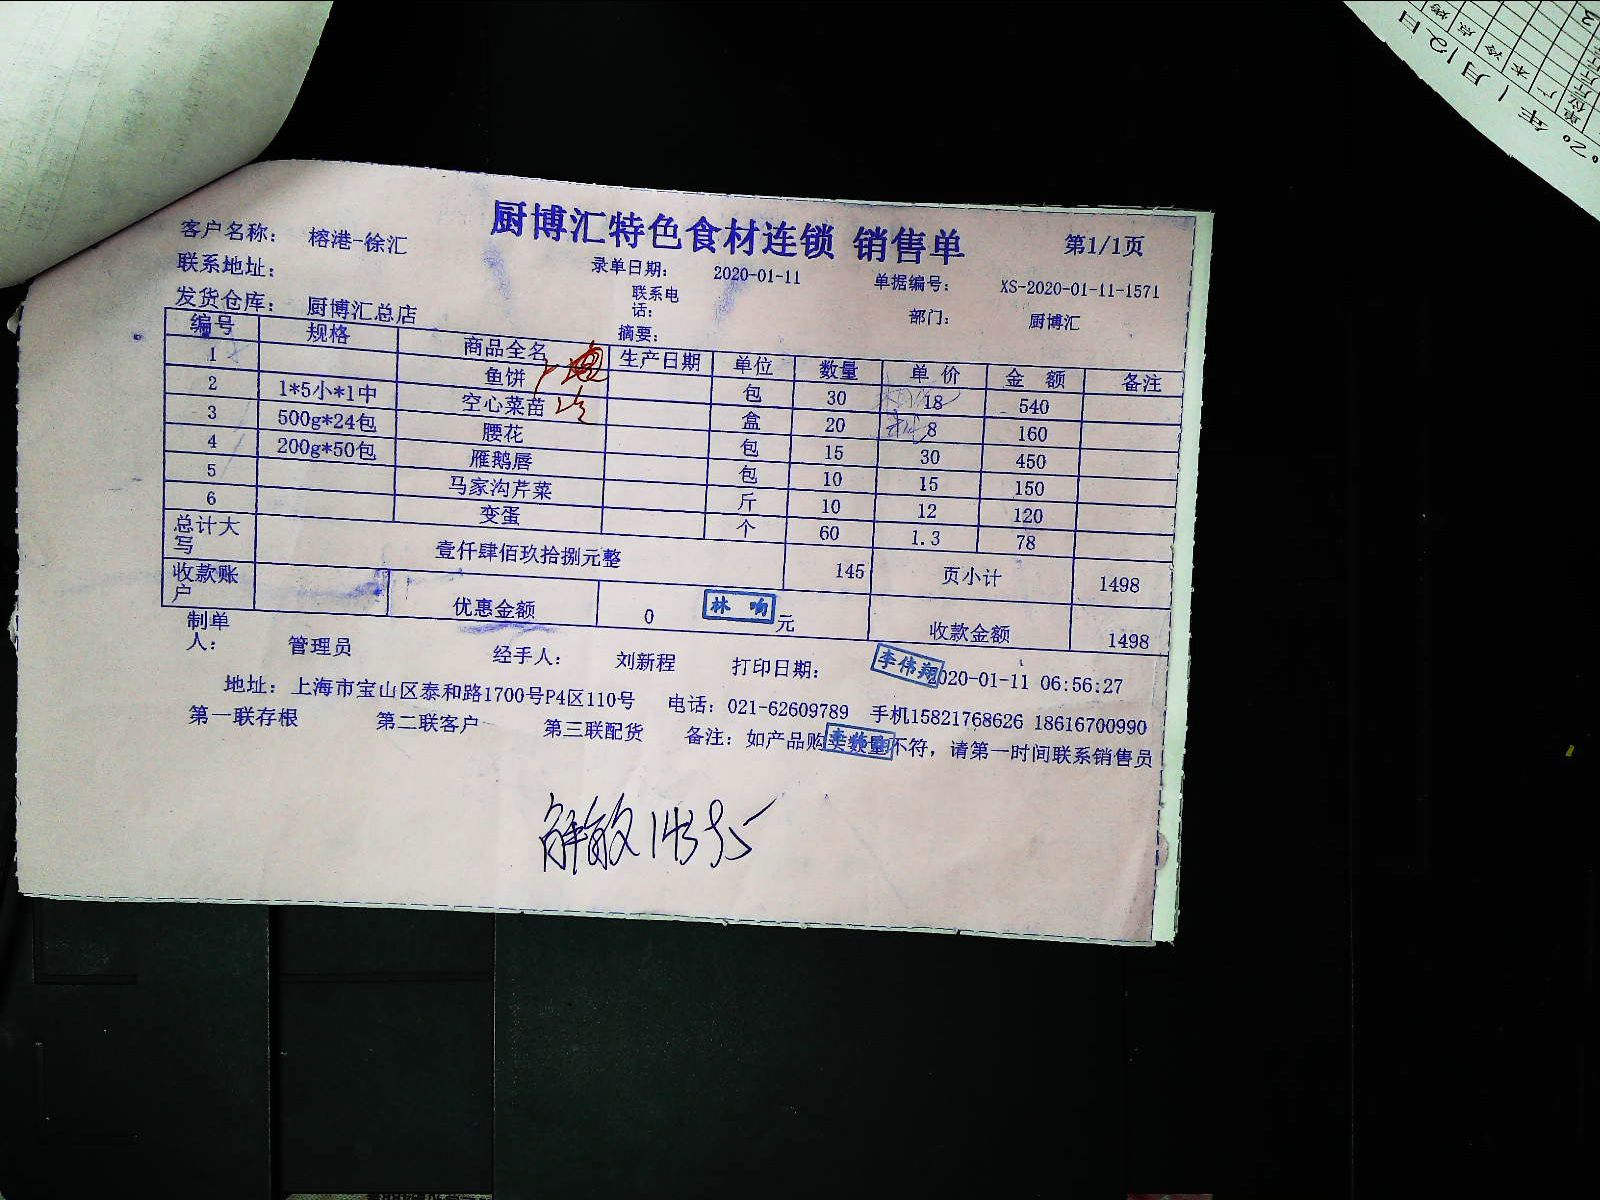 厨博汇特色食材连锁 销售单
第1/1页
客户名称： 榕港-徐汇
录单日期： 2020-01-11 单据编号： XS-2020-01-11-1571
联系地址： 联系电话： 部门： 厨博汇
发货仓库： 厨博汇总店 摘要：
编号 规格 商品全名 生产日期 单位 数量 单价 金额 备注
1 鱼饼 包 30 18 540
2 1*5小*1中 空心菜苗 盒 20 8 160
3 500g*24包 腰花 包 15 30 450
4 200g*50包 雁鹅唇 包 10 15 150
5 马家沟芹菜 斤 10 12 120
6 变蛋 个 60 1.3 78
总计大写 壹仟肆佰玖拾捌元整 145 页小计 1498
收款账户 优惠金额 0 林响 元 收款金额 1498
制单人： 管理员 经手人： 刘新程 打印日期： 李伟翔 2020-01-11 06:56:27
地址：上海市宝山区泰和路1700号P4区110号 电话：021-62609789 手机15821768626 18616700990
第一联存根 第二联客户 第三联配货 备注：如产品购买数量不符，请第一时间联系销售员
年1月12日
单位